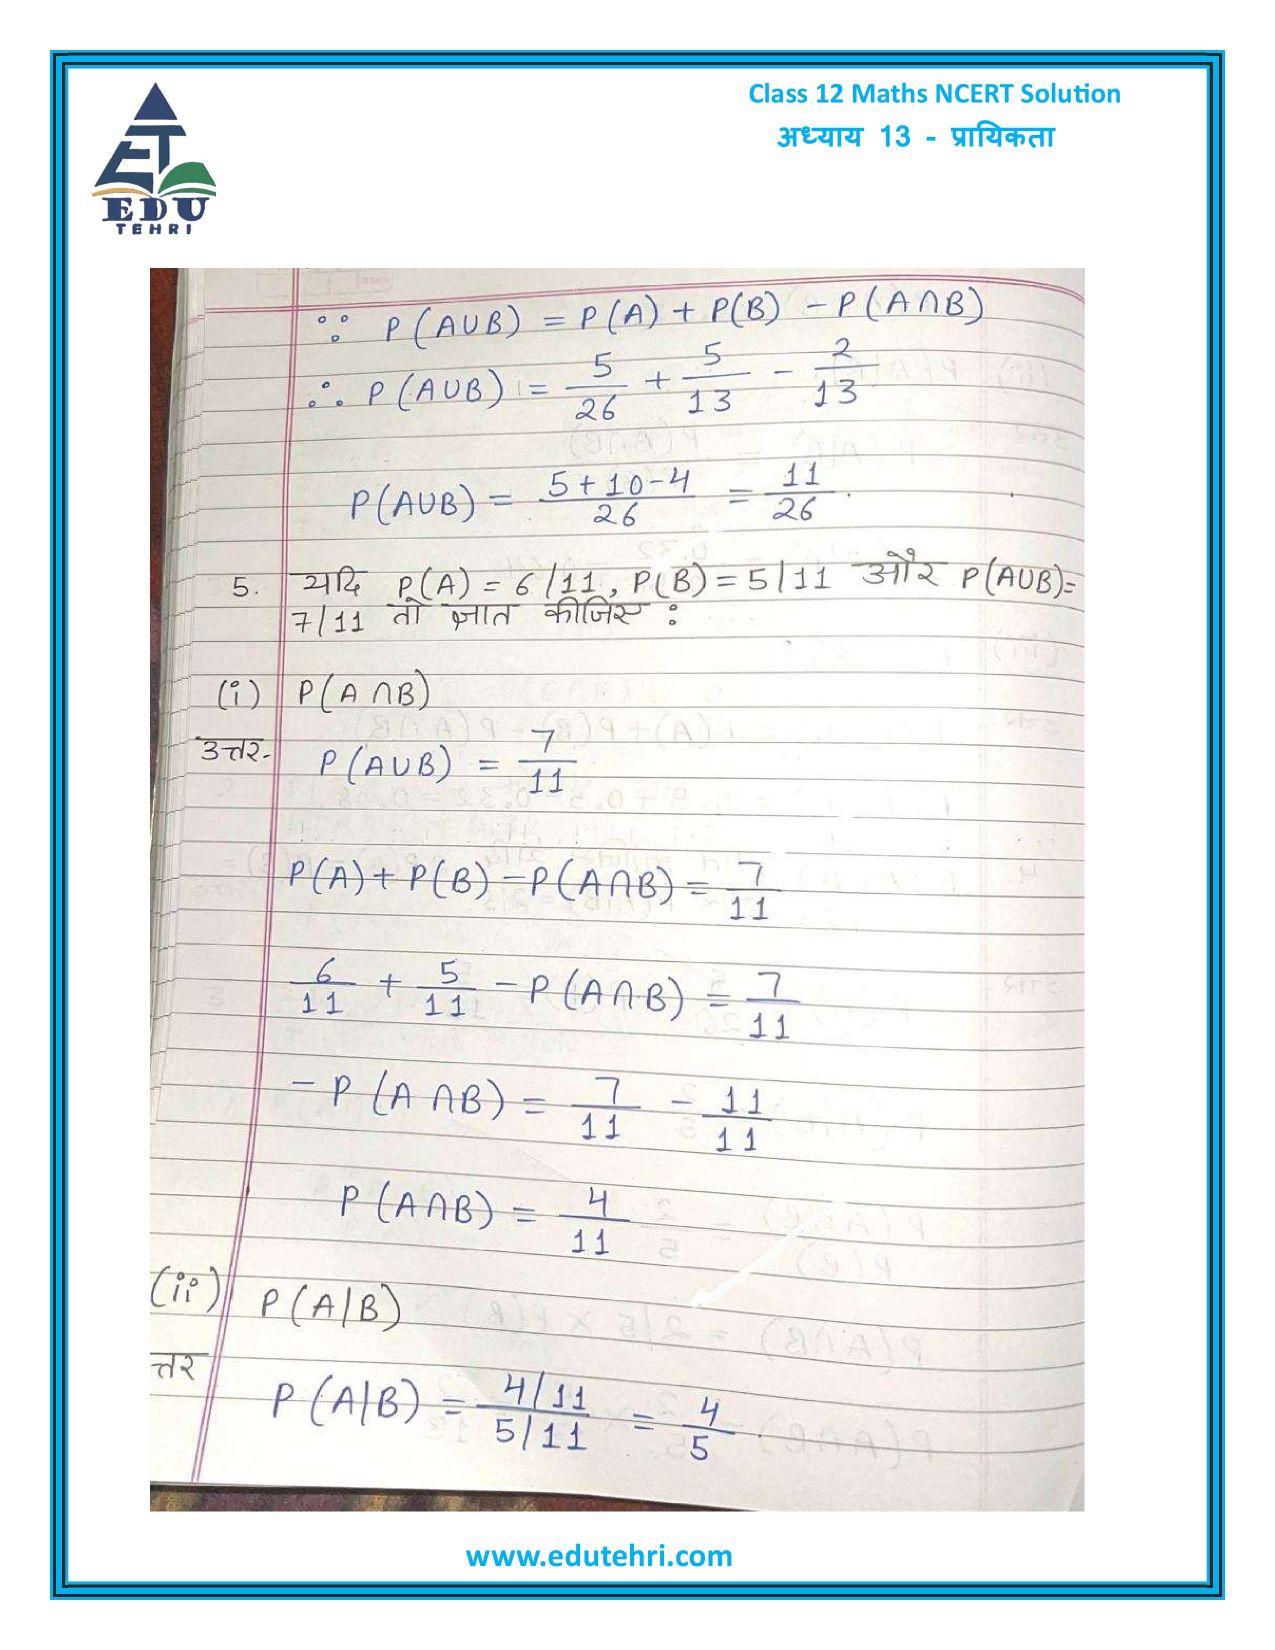 Class 12 Maths NCERT Solution
अध्याय 13 - प्रायिकता
EDU
TEHRI
∵ P(A∪B) = P(A) + P(B) - P(A∩B)
∴ P(A∪B) = 5/26 + 5/13 - 2/13
P(A∪B) = 5+10-4/26 = 11/26.
5. यदि P(A) = 6/11, P(B) = 5/11 और P(A∪B)=
7/11 तो ज्ञात कीजिए :
(i) P(A∩B)
उत्तर- P(A∪B) = 7/11
P(A) + P(B) - P(A∩B) = 7/11
6/11 + 5/11 - P(A∩B) = 7/11
- P(A∩B) = 7/11 - 11/11
P(A∩B) = 4/11
(ii) P(A|B)
त्तर
P(A|B) = 4/11 / 5/11 = 4/5.
www.edutehri.com